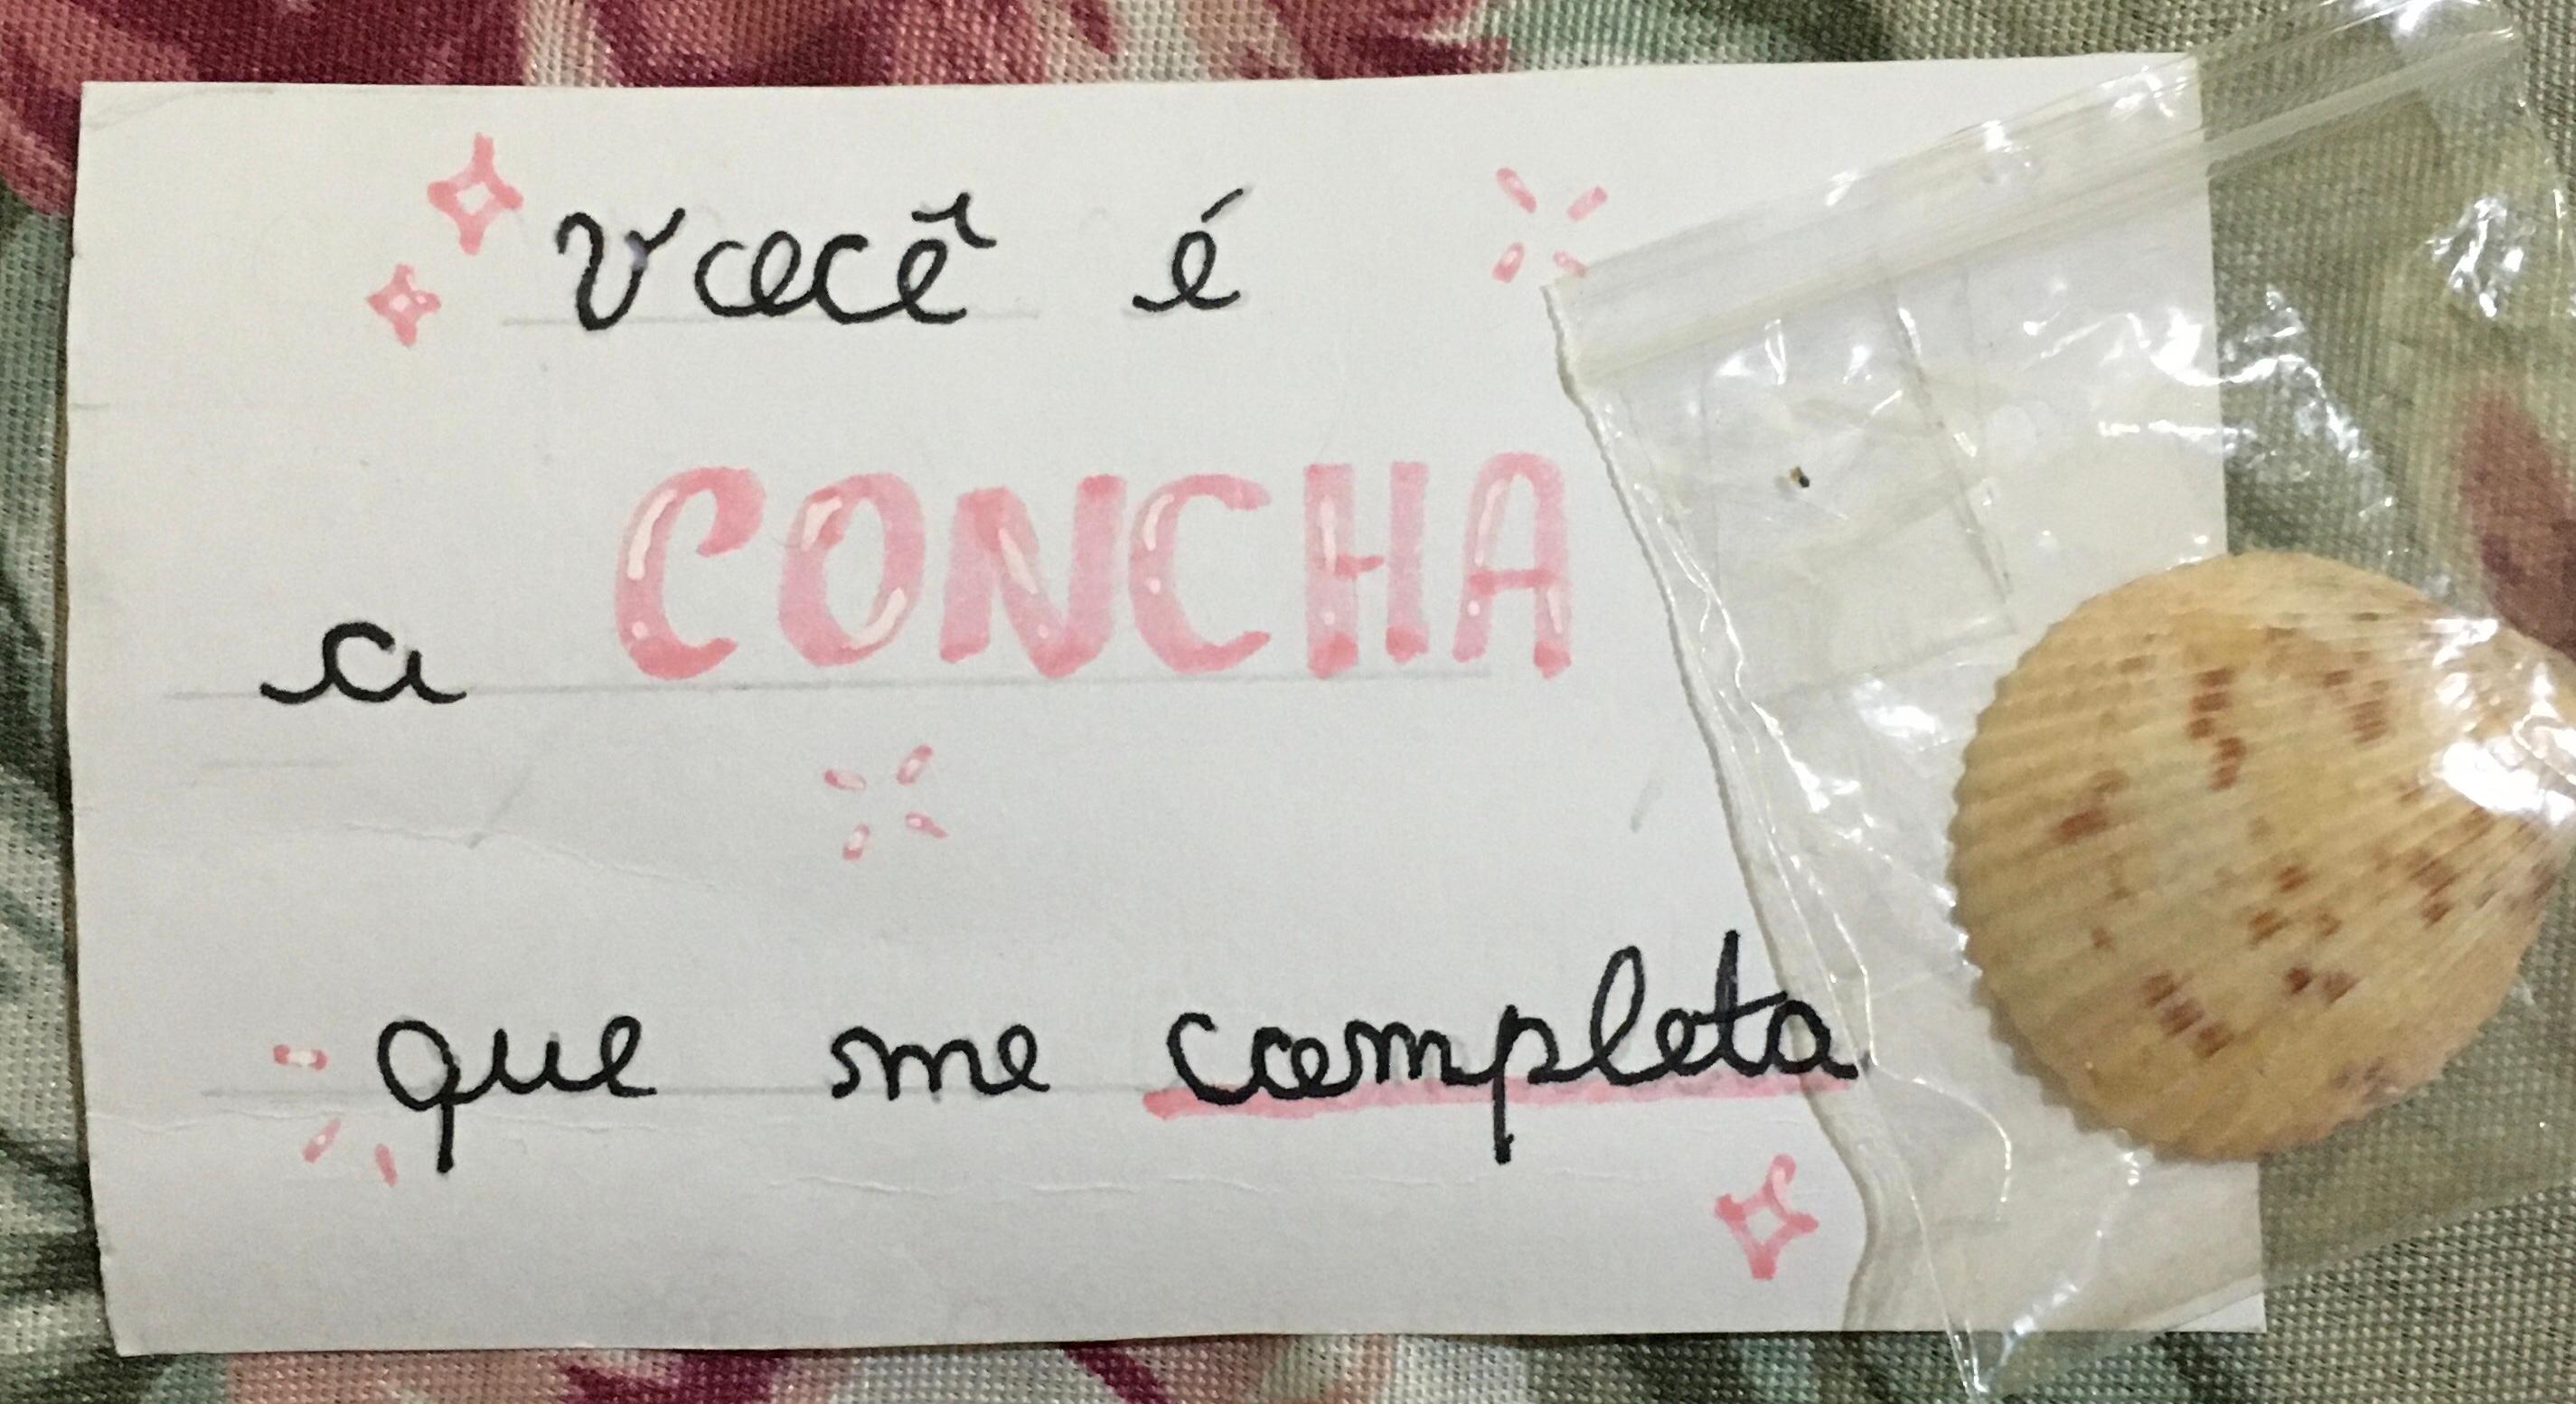 você é
a CONCHA
que me completa